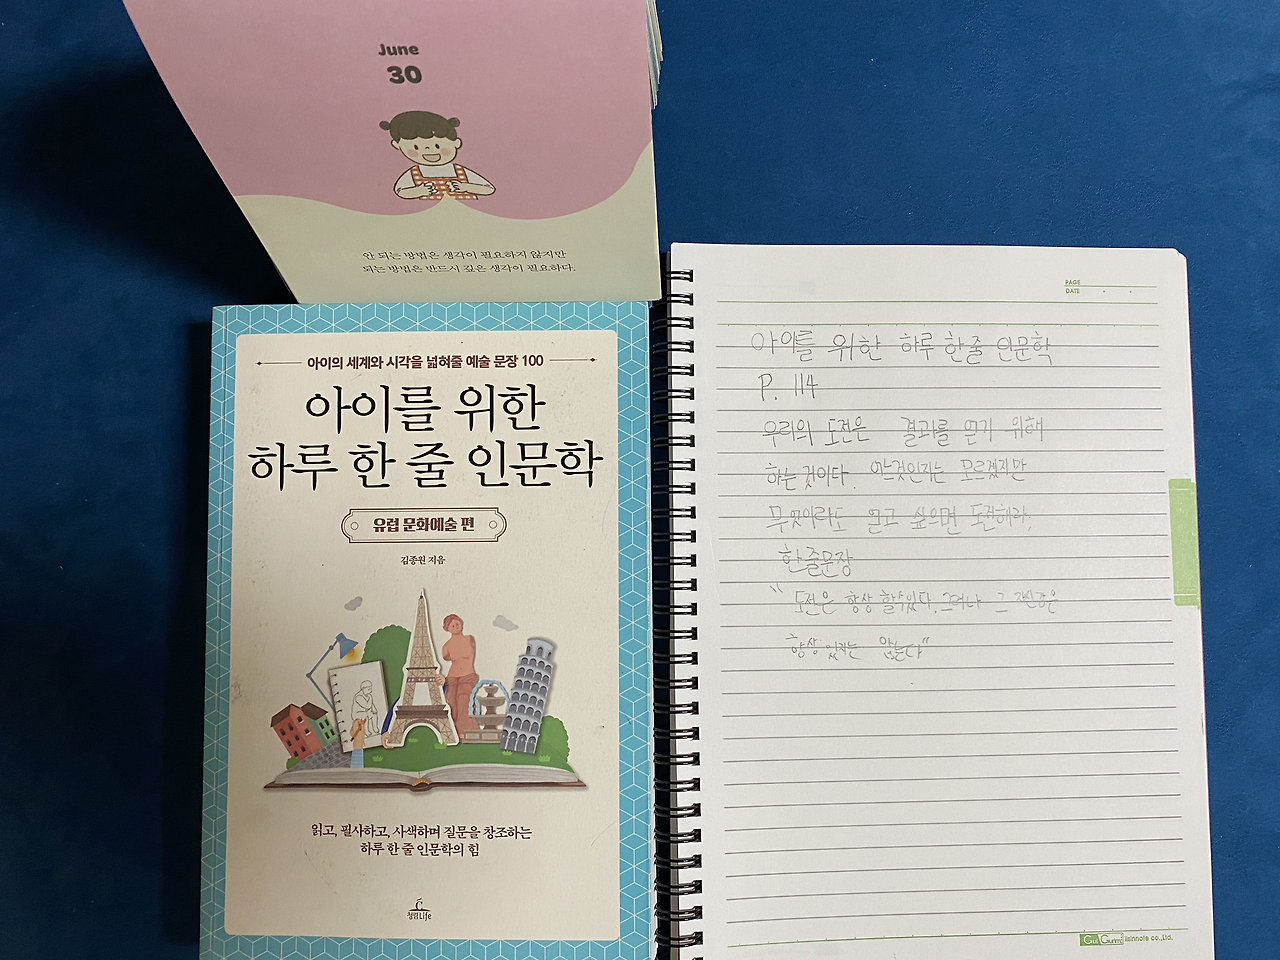 June
30
안 되는 방법은 생각이 필요하지 않지만
되는 방법은 반드시 깊은 생각이 필요하다.
아이의 세계와 시각을 넓혀줄 예술 문장 100
아이를 위한
하루 한 줄 인문학
유럽 문화예술 편
김종원 지음
읽고, 필사하고, 사색하며 질문을 창조하는
하루 한 줄 인문학의 힘
청림Life
PAGE
DATE
아이를 위한 하루 한줄 인문학
P. 114
우리의 도전은 결과를 얻기 위해
하는것이다. 모르겠지만
무엇이라도 얻고 싶으면 도전해라.
한줄문장
"도전은 항상 할수있다. 그러나 그 자신감은
항상 있지는 않는다"